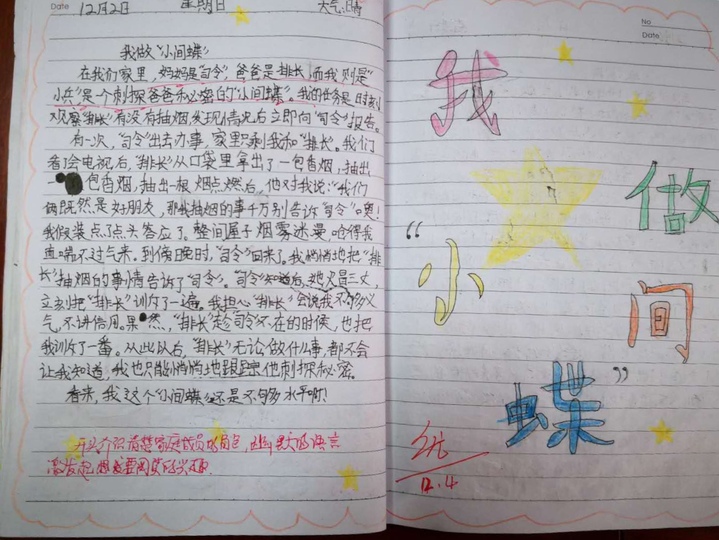 Date 12月2日 星期日 天气:晴
我做“小间蝶”
在我们家里,妈妈是“司令”,爸爸是“排长”,而我则是“
小兵”,是一个刺探爸爸秘密的“小间蝶”。我的任务是时刻
观察“排长”有没有抽烟发现情况后立即向“司令”报告。
有一次,“司令”出去办事,家里只剩我和“排长”。我们
看了会电视后,“排长”从口袋里拿出了一包香烟,抽出
一包香烟,抽出一根烟点燃后,他对我说:“我们
俩既然是好朋友,那我抽烟的事千万别告诉“司令”噢!
我假装点了点头答应了。整间屋子烟雾迷曼,呛得我
直喘不过气来。到傍晚时,“司令”回来了。我悄悄地把“排
长”抽烟的事情告诉了“司令”。“司令”知道后,她火冒三丈,
立刻把“排长”训斥了一遍。我担心“排长”会说我不够义
气,不讲信用。果然,“排长”趁“司令”不在的时候,也把
我训斥了一番。从此以后,“排长”无论做什么事,都不会
让我知道,我也只能悄悄地跟踪他刺探秘密。
看来,我这个“小间蝶”还是不够水平啊!
开头介绍清楚家庭成员的角色,幽默的语言
激发起想要阅读的兴趣.
No
Date
我
做
“小
间
蝶”
优
12.4